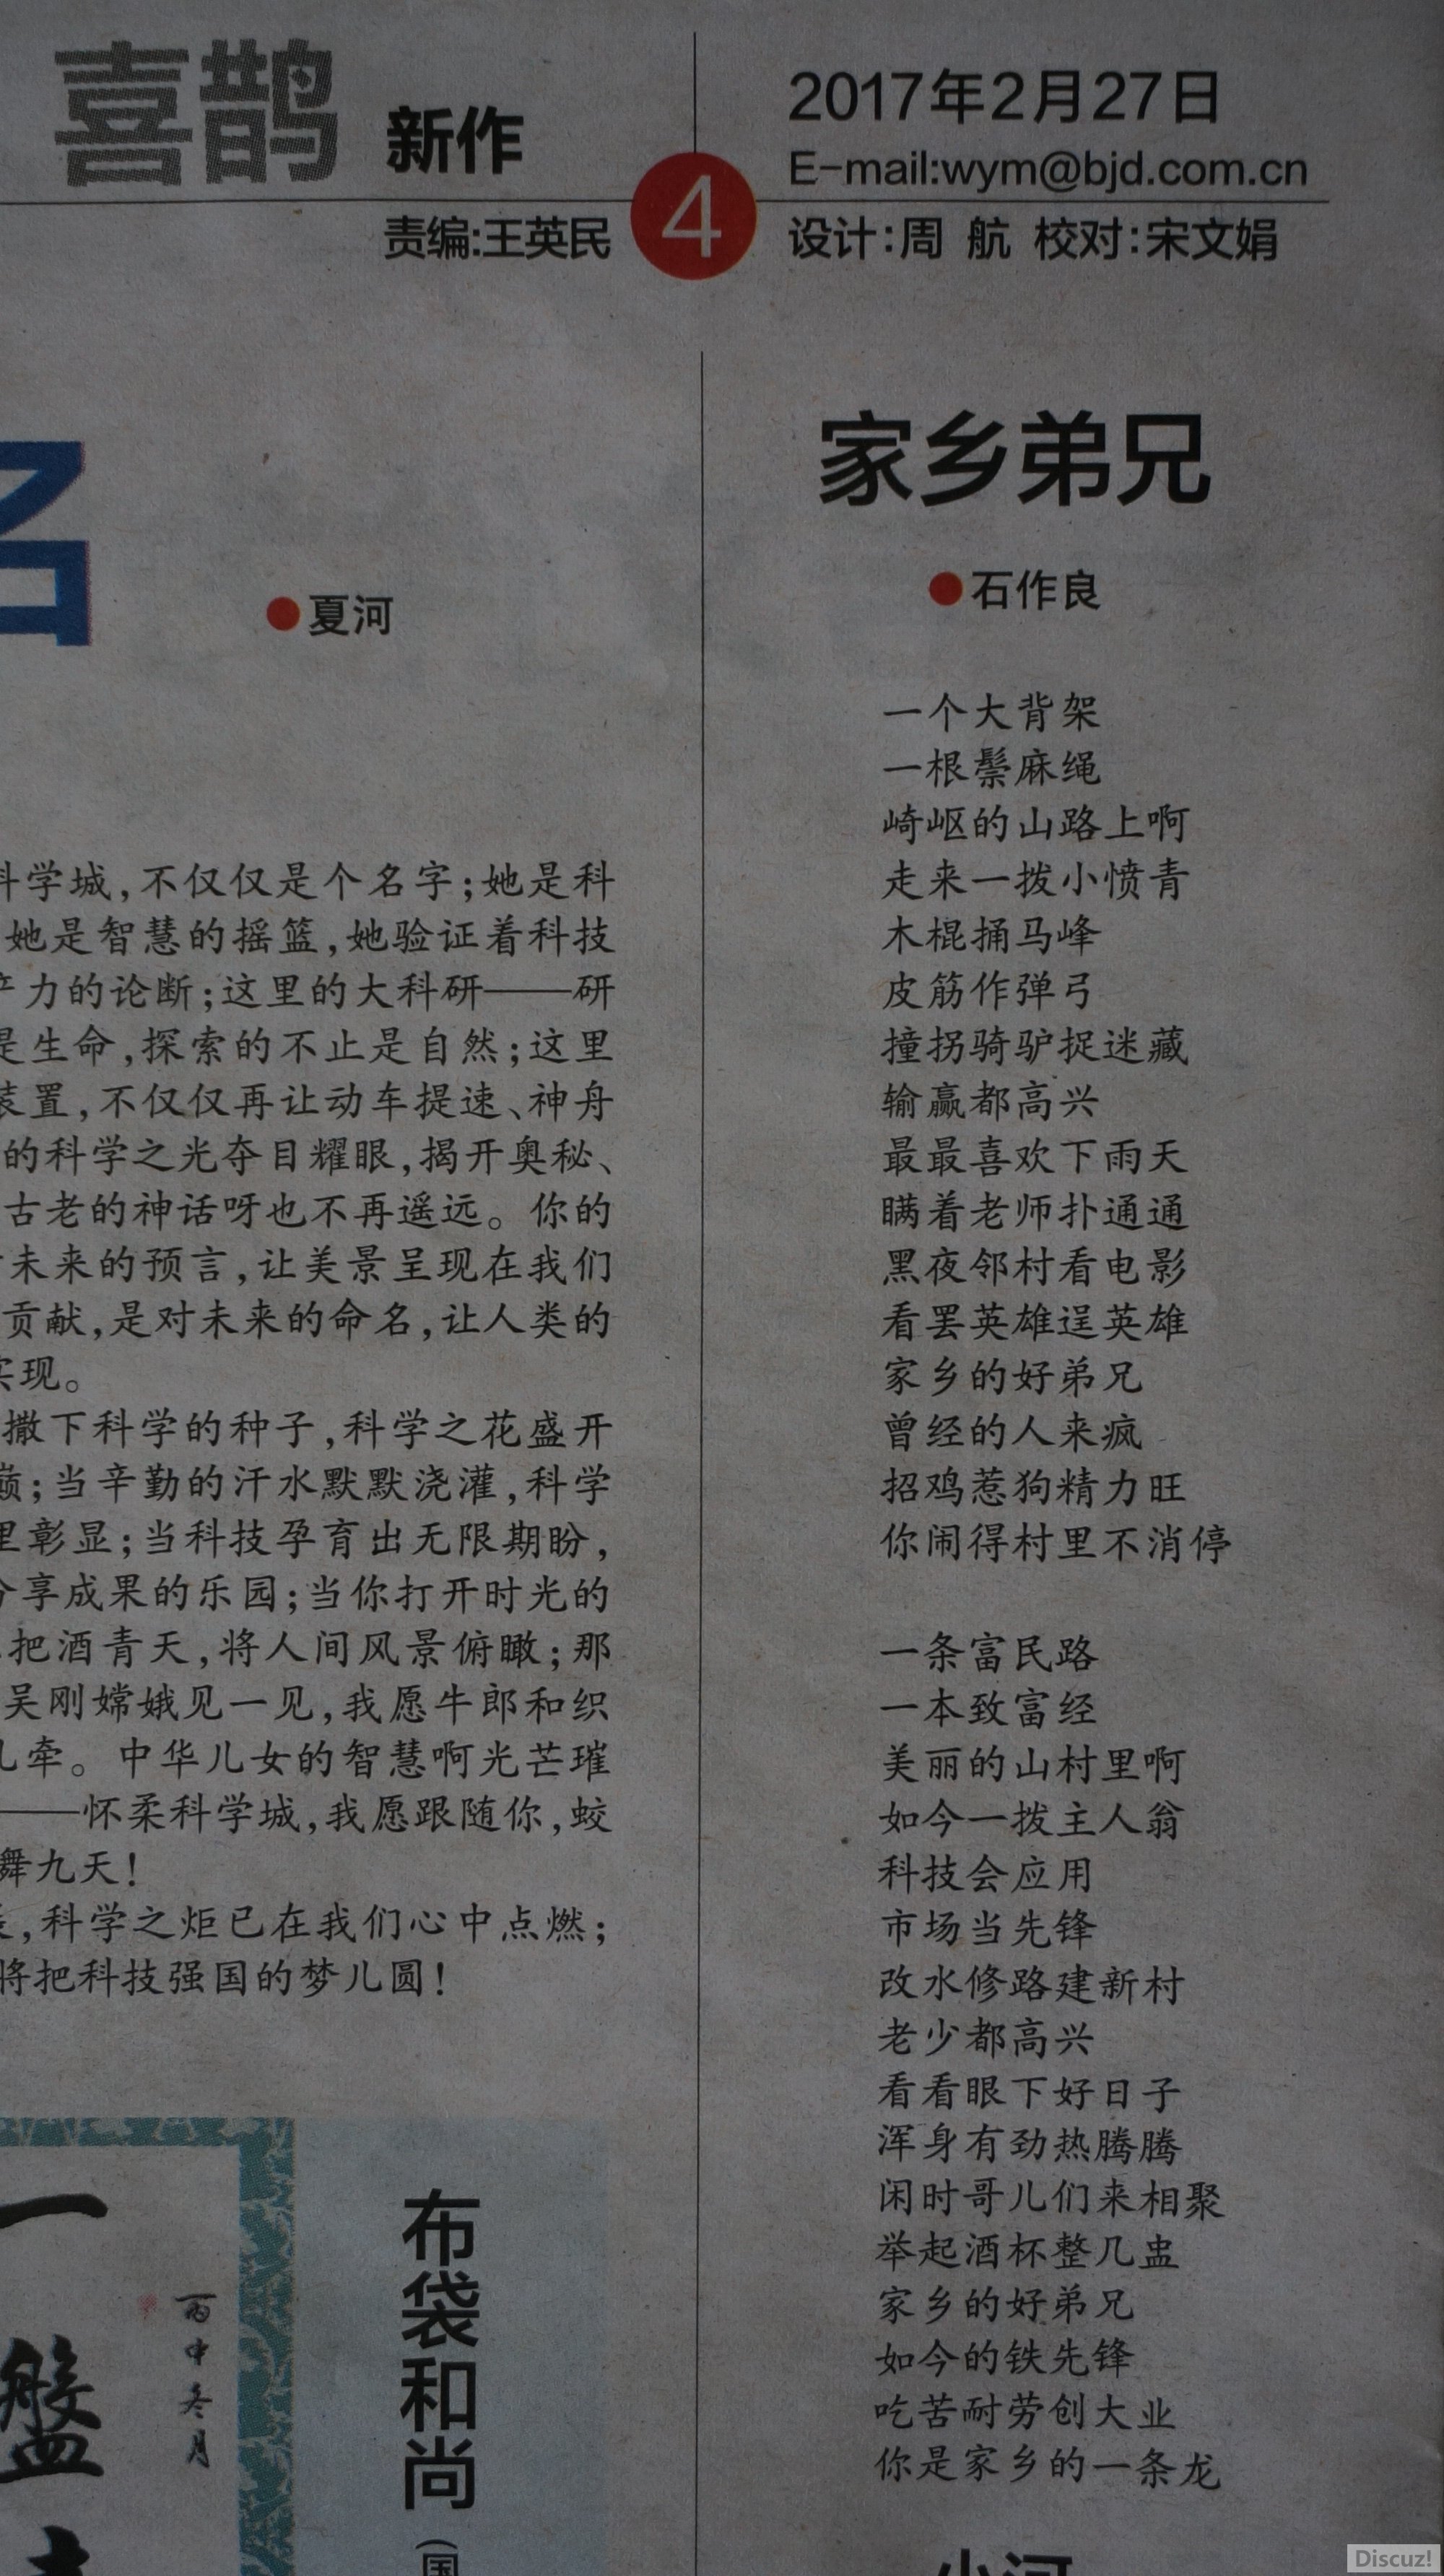 喜鹊 新作
2017年2月27日
E-mail:wym@bjd.com.cn
责编:王英民
4
设计:周 航 校对:宋文娟
名
●夏河
科学城,不仅仅是个名字;她是科
她是智慧的摇篮,她验证着科技
产力的论断;这里的大科研——研
是生命,探索的不止是自然;这里
装置,不仅仅再让动车提速、神舟
的科学之光夺目耀眼,揭开奥秘、
古老的神话呀也不再遥远。你的
未来的预言,让美景呈现在我们
贡献,是对未来的命名,让人类的
实现。
撒下科学的种子,科学之花盛开
巅;当辛勤的汗水默默浇灌,科学
里彰显;当科技孕育出无限期盼,
分享成果的乐园;当你打开时光的
把酒青天,将人间风景俯瞰;那
吴刚嫦娥见一见,我愿牛郎和织
儿牵。中华儿女的智慧啊光芒璀
——怀柔科学城,我愿跟随你,蛟
舞九天!
,科学之炬已在我们心中点燃;
将把科技强国的梦儿圆!
家乡弟兄
●石作良
一个大背架
一根鬃麻绳
崎岖的山路上啊
走来一拨小愤青
木棍捅马峰
皮筋作弹弓
撞拐骑驴捉迷藏
输赢都高兴
最最喜欢下雨天
瞒着老师扑通通
黑夜邻村看电影
看罢英雄逞英雄
家乡的好弟兄
曾经的人来疯
招鸡惹狗精力旺
你闹得村里不消停
一条富民路
一本致富经
美丽的山村里啊
如今一拨主人翁
科技会应用
市场当先锋
改水修路建新村
老少都高兴
看看眼下好日子
浑身有劲热腾腾
闲时哥儿们来相聚
举起酒杯整几盅
家乡的好弟兄
如今的铁先锋
吃苦耐劳创大业
你是家乡的一条龙
一
盤
丙申冬月
布袋和尚
(国
小河
Discuz!